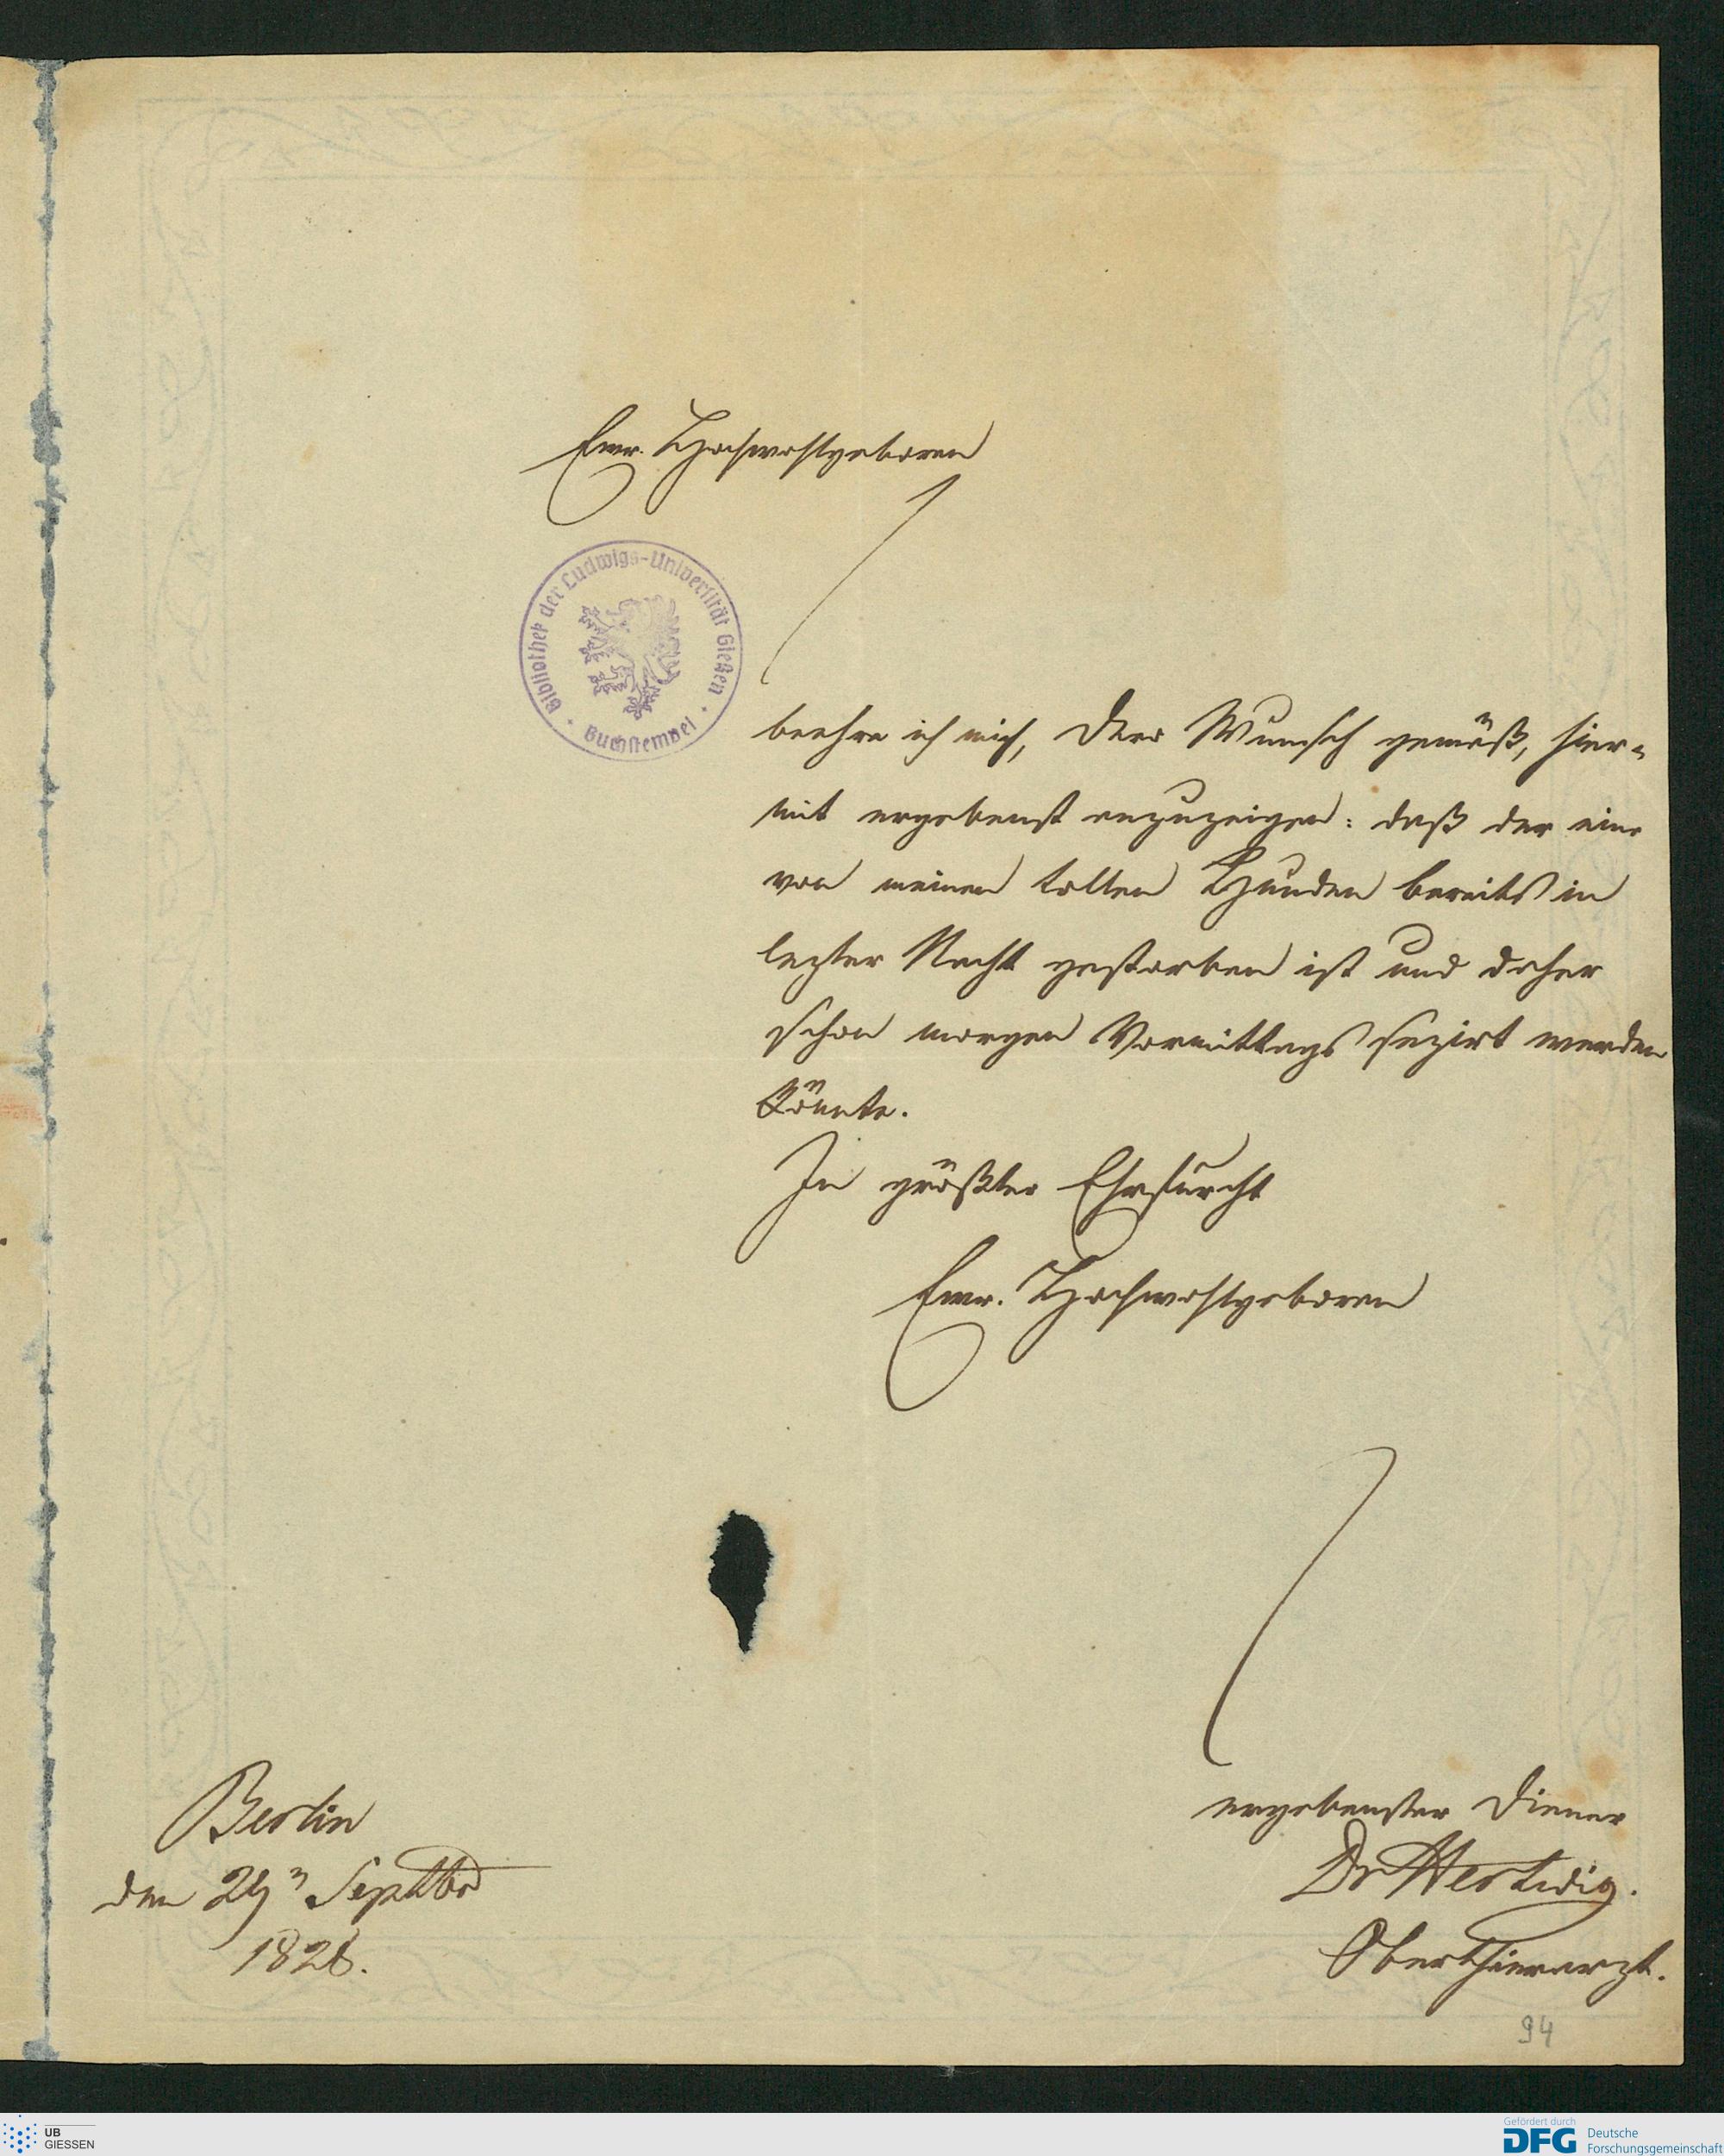 Ewr. Hochwohlgeboren
Bibliothek der Ludwigs-Universität Gießen
Buchstempel
beehre ich mich, Dero Wunsch gemäß, hier-
mit ergebenst anzuzeigen: daß der eine
von meinen tollen Hunden bereits in
lezter Nacht gestorben ist und daher
schon morgen Vormittags sezirt werden
könnte.
In größter Ehrfurcht
Ewr. Hochwohlgeboren
ergebenster Diener
Dr Hertwig.
Oberthierarzt.
Berlin
den 29n Septbr
1828.
94
UB
GIESSEN
Gefördert durch
DFG Deutsche
Forschungsgemeinschaft